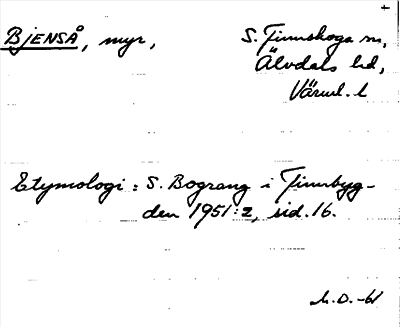 BJENSÅ, myr, S. Finnskoga sn,
Älvdals hd,
Värml. l
Etymologi: S. Bograng i Finnbyg-
den 1951:2, sid. 16.
M.O.-61